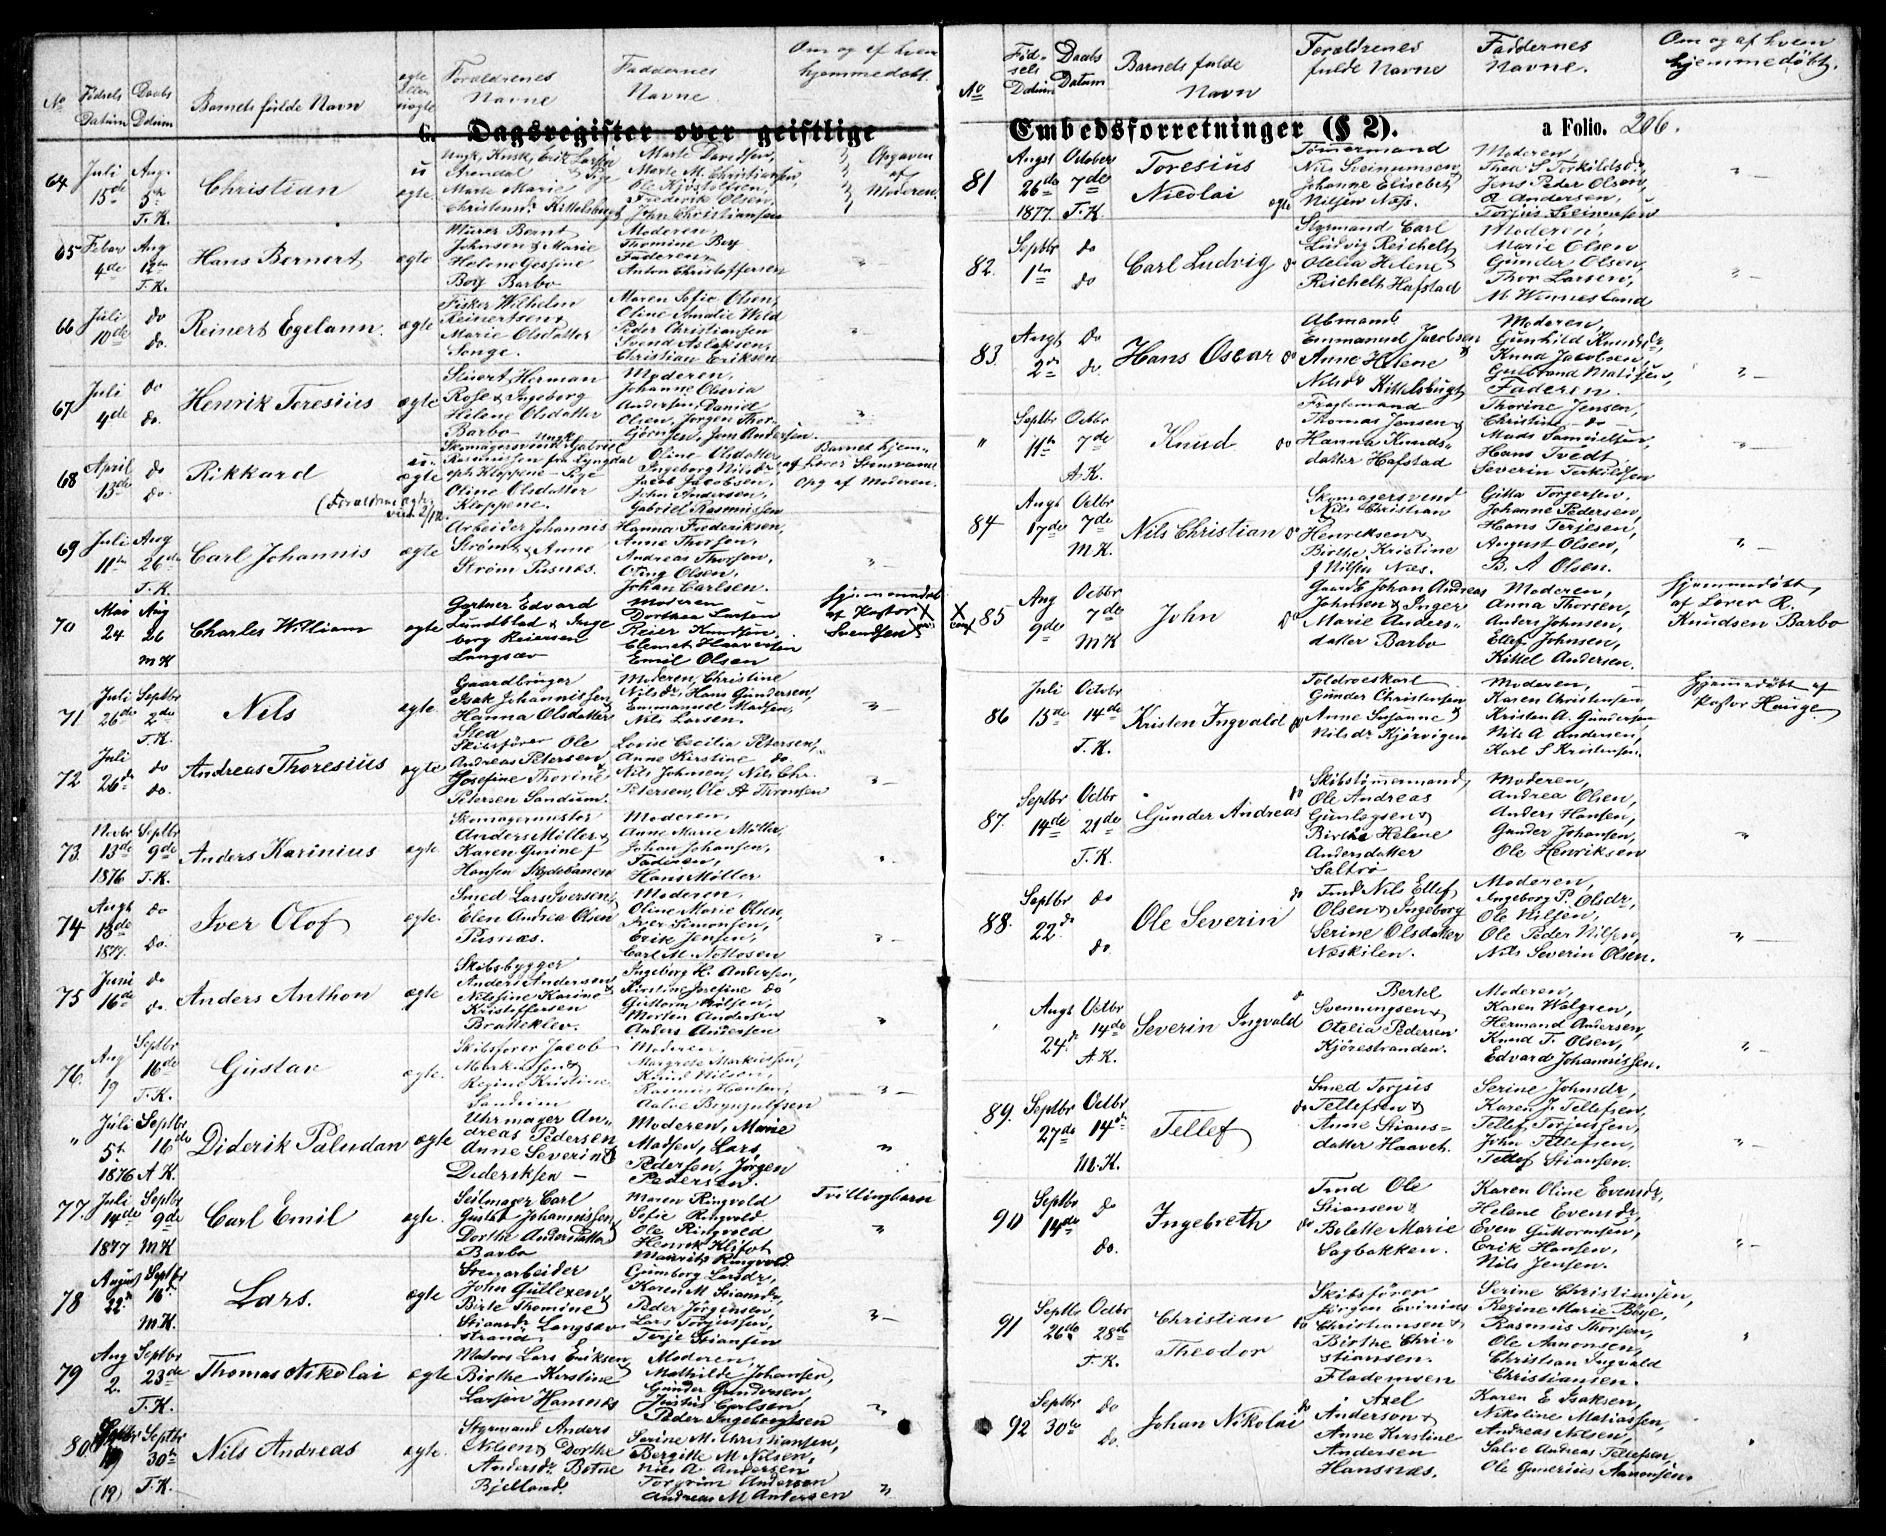 No
Fødsels Datum
Daabs Datum
Barnets fulde Navn
ægte eller uægte
Forældrenes Navne
Faddernes Navne
Om og af hvem hjemmedøbt.
G. Dagsregister over geistlige
64
Juli 15de
Aug. 5te T. K.
Christian
u ægte
Ungk. Kusk, Erik Larsen
Arendal & Pige
Marte Marie
Christensd. Kittelsbugt
Marte Davidsen,
Marte M. Christiansen,
Ole Kjøstolsen,
Frederik Olsen,
John Christiansen
Opgaven
af
Moderen.
65
Febar 4de
Aug 12te T. K.
Hans Bernert
ægte
Murer Bernt
Johnsen & Marie
Helene Gessine
Berg Barbo
Moderen,
Thomine Berg
Faderen,
Anton Christoffersen
66
Juli 10de
do do.
Reinert Egelann.
ægte
Fisker Wilhelm
Reinertsen &
Marie Olsdatter
Songe.
Maren Sofie Olsen,
Oline Amalie Wold
Peder Christiansen
Svend Aslaksen,
Christian Eriksen
67
Juli 4de
do do.
Henrik Toresius
ægte
Stuert Herman
Rose & Ingeborg
Helene Olsdatter
Barbo
Moderen,
Johanne Olevia
Andersen, Daniel
Olsen, Jørgen Thor-
gjørnsen, Jens Andersen.
68
April 13de
do do.
Rikkard
(Forældrene ægtev. 2/12
u. ægte
Skomagersvend Ungk. Gabriel
Rasmussen fra Lyngdal
oph. Kloppene - Pige
Oline Olsdatter
Kloppene.
Oline Olsdatter
Ingeborg Nilsdr.
Jacob Jacobsen,
John Andersen,
Gabriel Rasmussen
Barnet hjem-
af Lærer
Opg af Moderen.
69
Juli 11te
Aug 26de T. K.
Carl Johannis
ægte
Arbeider Johannis
Strøm & Anne
Strøm Pusnæs.
Hanna Frederiksen,
Anne Thorsen,
Andreas Thorsen,
Oting Olsen,
Johan Carlsen.
70
Mai 24
Aug 26 M K
Charles William
ægte
Gartner Edvard
Lundblad & Inge
borg Reiersen
Langsæv
Moderen
Dorthea Larsen
Reier Knudsen,
Clemet Haaversen
Emil Olsen
hjemmedøbt
af Pastor
Svendsen X
71
Juli 26de
Septbr 2de T. K.
Nils
ægte.
Gaardbruger
Isak Johannissen
Hanna Olsdatter
Sted
Moderen, Christine
Nilsdr, Hans Gundersen,
Emmanuel Madsen,
Nils Larsen.
72
Juli 26de
do do.
Andreas Thoresius
ægte
Skibsfører Ole
Andreas Petersen &
Josefine Thorine
Petersen Sandum.
Lovise Cecilia Petersen,
Anne Kirstine do,
Nils Johnsen, Nils Chr.
Petersen, Ole A Thomsen
73.
Novbr 13de 1876
Septbr 9de T. K.
Anders Karinius
ægte
Skomagermester
Anders Møller &
Karen Gurine f
Hansen Skydebanen
Moderen,
Anne Marie Møller,
Johan Johansen,
Faderen,
Hans Møller
74
Augt 13de 1877.
do do.
Iver Olof
ægte.
Smed Lars Iversen &
Elen Andrea Olsen
Pusnæs.
Moderen,
Oline Marie Olsen,
Iver Simonsen,
Erik Jensen,
Carl M. Nottosen
75
Juni 16de
do do.
Anders Anthon
ægte
Skibsbygger
Anders Andersen &
Nilsine Karine
Kristoffersen
Bratteklev.
Ingeborg H. Andersen,
Kirstine Josefine do
Guttorm Nilsen,
Morten Andersen
Anders Andersen
76.
Aug 19
Septbr 16de T. K.
Gustav
ægte.
Skibsfører Jacob
Markussen &
Regine Kristine
Sandum
Moderen,
Margrete Markussen,
Knud Nilsen,
Rasmus Hansen,
Aalve Brynjulfsen
"
Juli 5t. 1876
Septbr 16de A K.
Diderik Paludan
ægte
Uhrmager An-
dreas Pedersen
Anne Severine
Dideriksen
Moderen, Marie
Madsen, Lars
Pedersen, Jørgen
Pedersen.
77.
Juli 14de 1877
Septbr 9de M K
Carl Emil
ægte.
Seilmager Carl
Gustav Johannissen
Dorthe Andersdatter
Barbo
Maren Ringvold
Sofie Ringvold
Ole Ringvold
Henrik Klifot
Mauritz Ringvold.
Tvillingbarn
78
August 22d
Septbr 16d M. K.
Lars.
ægte
Stenarbeider
John Gullexen &
Birte Thomine
Stiansdr Langsæv
strand
Gumborg Larsdr,
Karen M. Stiansdr,
Peder Jørgensen,
Lars Torjussen,
Terje Stiansen
79
Aug 2.
Septbr 23de T. K.
Thomas Nikolai
ægte
Matros Lars Eriksen &
Birthe Kirstine
Larsen Hansnæs
Moderen,
Mathilde Johansen,
Gunder Gundersen
Justus Carlsen
Peder Ingebergtsen
80.
19 (19)
Septbr 30te T. K.
Nils Andreas
ægte.
Styrmand Anders
Nilsen & Dorthe
Andersdr. Betsie
Bjelland.
Serine M. Christiansen,
Bergitte M. Nilsen,
Nils A. Andersen
Torgrim Andersen
Andreas M Antersen
No
Fødsels Datum
Daabs Datum
Barnets fulde Navn
Forældrenes fulde Navne
Faddernes Navne.
Om og af hvem hjemmedøbt.
Embedsforretninger (§ 2). a Folio. 206.
81
Augst 26de 1877
October 7de T. K
Toresius
Nicolai
ægte
Tømermand
Nils Sveinumsen
Johanne Elisebet
Nilsen Næs.
Moderen,
Thea S Torkildsdr,
Jens Peder Olsen,
O Andersen,
Torjus Sveinumsen
82.
Septbr 1te
do do
Carl Ludvig
do
Styrmand Carl
Ludvig Reichelt
Otelia Helene
Reichelt Hafstad
Moderen,
Marie Olsen
Gunder Olsen,
Thor Larsen,
M. Winnesland
83.
Augt 2de
do do.
Hans Oscar
do
Ubmand
Emmanuel Jacobsen
Anne Helene
Nilsdr Kittelsbugt
Moderen,
Gunhild Knudsdr,
Knud Jacobsen,
Gulbrand Matisen,
Faderen.
"
Septbr 11te
Octbr 7de A K.
Knud
do
Fragtemand
Thomas Jensen &
Hanna Knuds-
datter Hafstad
Thorine Jensen,
Christine do
Mads Samuelsen,
Hans Tvedt,
Severin Terkildsen
84
Augt 17de
Octbr 7de M K.
Nils Christian
do
Skomagersvend
Nils Christian
Henriksen &
Birthe Kristine
f Nilsen Næs.
Gitta Torgersen,
Johanne Pedersen,
Hans Terjesen,
August Olsen,
B. A Olsen.
X
85
Aug 9de
Octbr 7de M K
John
do
Gaardb Johan Andreas
Johnsen & Inger
Marie Anders-
datter Barbo
Moderen,
Anna Thorsen,
Anders Johnsen,
Ellef Johnsen,
Kittel Andersen.
hjemmedøbt
af Lærer R.
Knudsen Barbo
86
Juli 15de
Octobr 14de T. K.
Kristen Ingvald
do
Toldroeskarl
Gunder Christensen
Anne Susanne &
Nilsdr Kjørvigen
Moderen,
Karen Christensen,
Kristen A. Gundersen
Nils A Andersen,
Karl S Kristensen.
Hjemmedøbt af
Pastor Hauge.
87.
Septbr 14de
Octbr 21de T. K.
Gunder Andreas
do
Skibstømermand,
Ole Andreas
Gunlegsen &
Birthe Helene
Andersdatter
Saltrø
Moderen,
Andrea Olsen,
Anders Hansen,
Gunder Johansen,
Ole Henriksen
88.
Septbr 22de
do do.
Ole Severin
do
Tmd Nils Ellef
Olsen & Ingeborg
Serine Olsdatter
Neskilen.
Moderen,
Ingeborg P. Olsdr,
Ole Nilsen,
Ole Peder Nilsen,
Nils Severin Olsen.
Augt 24.
Octbr 14de A. K.
Severin Ingvald
do
Bertel
Svenningsen &
Otelia Pedersen
Kjørestranden.
Moderen,
Karen Walgren,
Hermand Andersen,
Knud T. Olsen,
Edvard Johannissen.
89.
Septbr 27de
Octbr 14de M. K.
Tellef
do
Smed Torjus
Tellefsen &
Anne Stians-
datter Haaveh.
Serine Johnsdr,
Karen J. Tellefsen,
Tellef Torjussen,
John Tellefsen,
Tellef Stiansen.
90
Septbr 14de
do do.
Ingebreth
do
Tmd Ole
Stiansen &
Bolette Marie
Sagbakken.
Karen Oline Evensdr,
Helene Evensdr,
Even Guttormsen,
Erik Hansen,
Nils Jensen.
91
Septbr 26de
Octbr 28de T. K.
Christian
Theodor
do
Skibsfører
Jørgen Evinius
Christiansen &
Birthe Chri-
stiansen.
Fladenwen
Serine Christiansen,
Regine Marie Bøye,
Rasmus Thorsen,
Ole Aanonsen,
Christian Ingvald
Christiansen.
92
Septbr 30te
do do.
Johan Nikolai
do
Axel
Anderson &
Anne Kirstine
Andersen
Hansnæs.
Karen E Isaksen,
Nikoline Matiassen,
Andreas Nilsen,
Salve Andreas Tellefsen
Ole Gunerius Aanonsen.